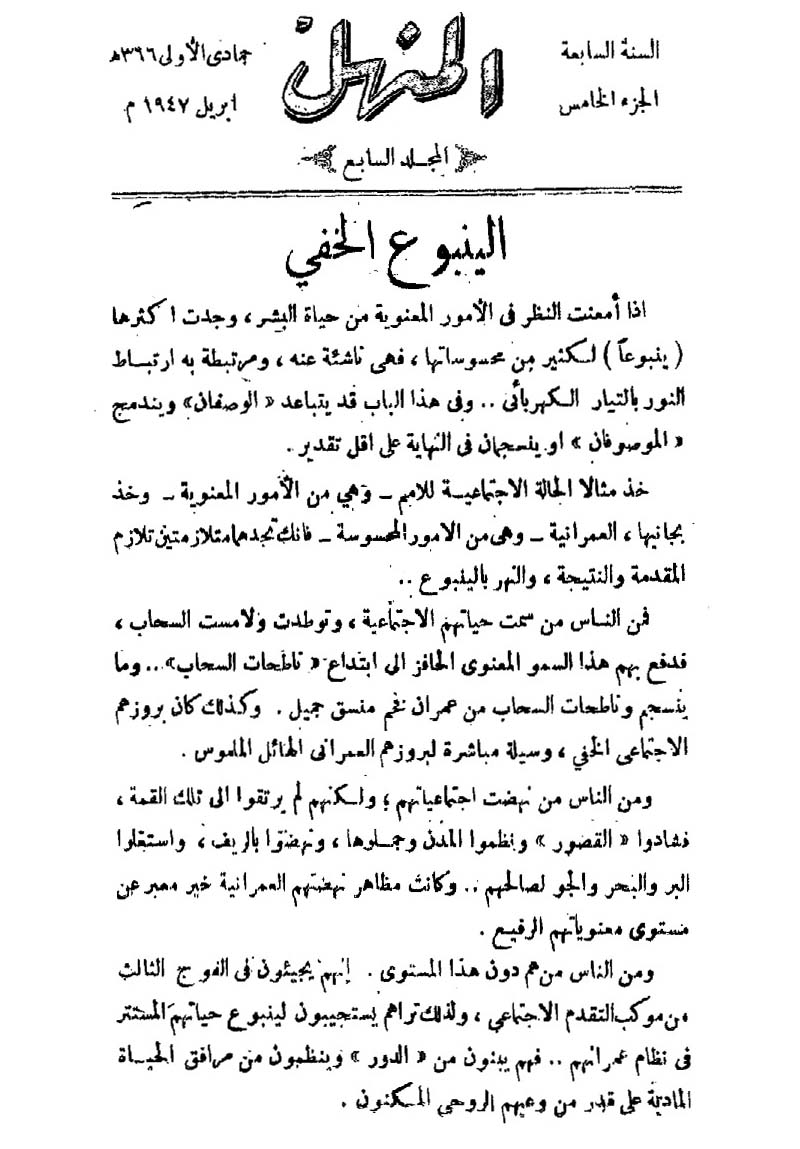 السنة السابعة
الجزء الخامس
المنهل
جمادى الأولى ١٣٦٦ھ
ابريل ١٩٤٧ م
المجلد السابع
الينبوع الخفي
اذا أمعنت النظر فى الأمور المعنوية من حياة البشر ، وجدت اكثرها
( ينبوعاً ) لكثير من محسوساتها ، فهى ناشئة عنه ، ومرتبطة به ارتباط
النور بالتيار الكهربأئى .. وفى هذا الباب قد يتباعد « الوصفان» ويندمج
« الموصوفان » او ينسجمان فى النهاية على اقل تقدير .
خذ مثالا الحالة الاجتماعية للامم ــ وهي من الأمور المعنوية ــ وخذ
بجانبها ، العمرانية ــ وهى من الامور المحسوسة ــ فانك تجدهما متلازمتين تلازم
المقدمة والنتيجة ، والنهر بالينبوع ..
فمن الناس من سمت حياتهم الاجتماعية ، وتوطدت ولامست السحاب ،
فدفع بهم هذا السمو المعنوى الحافز الى ابتداع « ناطحات السحاب» ... وما
ينسجم وناطحات السحاب من عمران فخم منسق جميل . وكذلك كان بروزهم
الاجتماعى الخفي ، وسيلة مباشرة لبروزهم العمرانى الهائل الملموس .
ومن الناس من نهضت اجتماعياتهم ؛ ولكنهم لم يرتقوا الى تلك القمة ،
فشادوا « القصور » ونظموا المدن وجملوها ، ونهضوا بالريف ، واستغلوا
البر والبحر والجو لصالحهم .. وكانت مظاهر نهضتهم العمرانية خير معبر عن
مستوى معنوياتهم الرفيع .
ومن الناس من هم دون هذا المستوى . إنهم يجيئون فى الفوج الثالث
من موكب التقدم الاجتماعي ، ولذلك تراهم يستجيبون لينبوع حياتهم المستتر
فى نظام عمرانهم .. فهم يبنون من « الدور » وينظمون من مرافق الحياة
المادية على قدر من وعيهم الروحي المكنون .